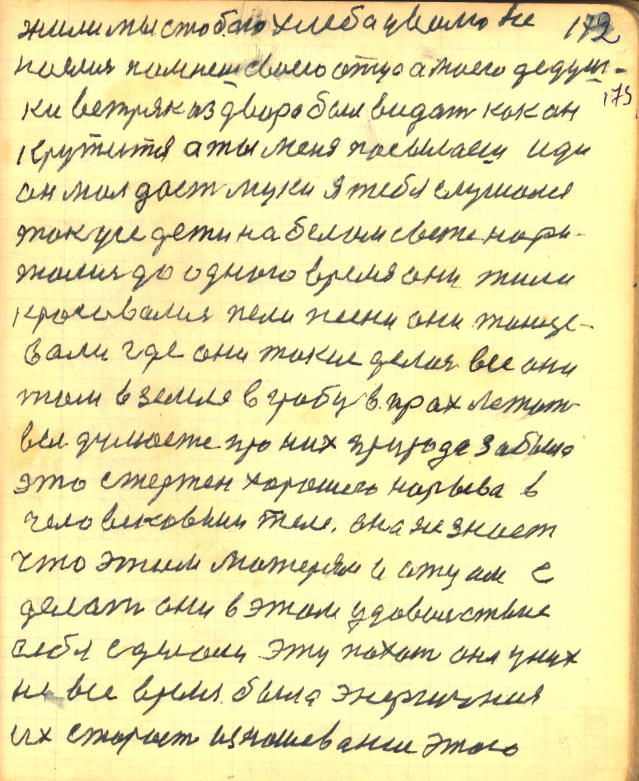 жили мы с тобою хлеба у вало не 172
поелия помнеш своего отца а моего дедуш- 175
ки ветряк аз двора был видат как он
крутится а ты меня посылаеш иди
он мол даст муки я тебя слушался
такуе дети на белом свете нари-
жолия до одного время они жили
красовалия пели песни они танце-
вали где они такие делая все они
там в земле в гробу в прах лежат
вся думаете про них природа забыла
это стержен хорошего нарыва в
человековким теле. она не знает
что этим матерям и отцам с
делат они в этом удовольствие
себя сделали эту похот она у них
не все время была энергичная
их старост изношевание этого